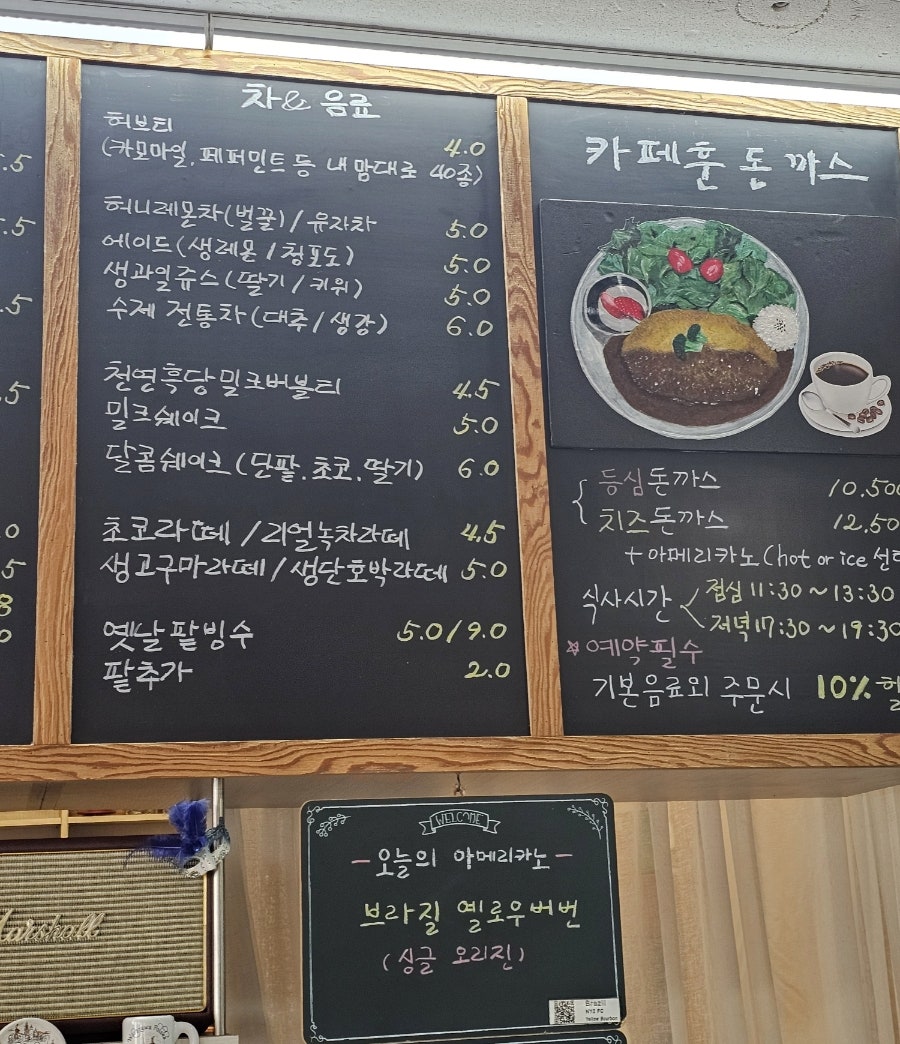 .5
.5
.5
.5
.0
.5
8
0
차 & 음료
허브티 4.0
(카모마일. 페퍼민트 등 내 맘대로 40종)
허니레몬차(벌꿀) / 유자차 5.0
에이드(생레몬 / 청포도) 5.0
생과일쥬스(딸기 / 키위) 5.0
수제 전통차(대추 / 생강) 6.0
천연흑당밀크버블티 4.5
밀크쉐이크 5.0
달콤쉐이크(단팥.초코.딸기) 6.0
초코라떼 / 리얼녹차라떼 4.5
생고구마라떼 / 생단호박라떼 5.0
옛날팥빙수 5.0 / 9.0
팥추가 2.0
카페훈 돈까스
등심돈까스 10.500
치즈돈까스 12.50
+ 아메리카노(hot or ice 선
식사시간 점심 11:30 ~ 13:30
저녁 17:30 ~ 19:30
예약필수
기본음료외 주문시 10%
WELCOME
- 오늘의 아메리카노 -
브라질 옐로우버번
(싱글 오리진)
Brazil
NY2 FC
Yellow Bourbon
Marshall